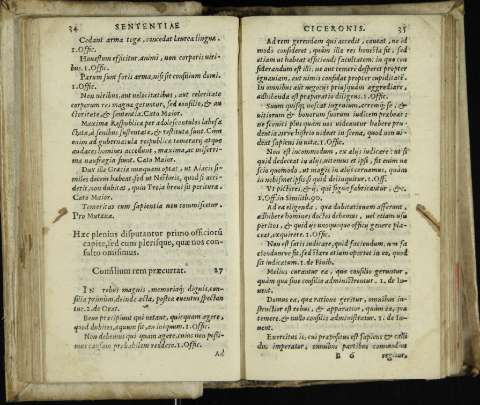 34 SENTENTIAE
Cedant arma togæ, concedat laurea linguæ.
1. Offic.
Honestum efficitur animi, non corporis viri-
bus. 1. Offic.
Parum sunt foris arma, nisi est consilium domi.
1. Offic.
Non viribus, aut velocitatibus, aut celeritate
corporum res magnæ geruntur, sed consilio, & au
ctoritate, & sententia. Cato Maior.
Maximæ Respublicæ per adolescentulos labefa
ctatæ, à senibus sustentatæ, & restitutæ sunt. Cum
enim ad gubernacula reipublicæ temerarij atque
audaces homines accedunt, maxima, ac miserri-
ma naufragia fiunt. Cato Maior.
Dux ille Græciæ nunquam optat, ut Aiacis si-
miles decem habeat, sed ut Nestoris, quod si acci-
derit, non dubitat, quin Troia brevi sit peritura.
Cato Maior.
Temeritas cum sapientia non commiscetur.
Pro Marcello.
Hæc plenius disputantur primo officiorū
capite, sed cum plerisque, quæ nos con-
sulto omisimus.
Consilium rem præcurrat. 27
IN rebus magnis, memoriaq; dignis, con-
silia primùm, deinde acta, postea eventus spectan
tur. 2. de Orat.
Bene præcipiunt qui vetant, quicquam agere,
quod dubites, æquum sit, an iniquum. 1. Offic.
Non debemus quicquam agere, cuius non possi-
mus causam probabilem reddere. 1. Offic.
Ad
CICERONIS. 35
Ad rem gerendam qui accedit, caveat, ne id
modo consideret, quàm illa res honesta sit, sed
etiam ut habeat efficiendi facultatem: in quo con
siderandum est illi: ne aut temerè desperet propter
ignaviam, aut nimis confidat propter cupiditatē.
In omnibus aut negocijs priusquàm aggrediare,
adhibenda est præparatio diligens. 1. Offic.
Suum quisq; noscat ingenium, acremq; se, &
vitiorum & bonorum suorum iudicem præbeat:
ne scenici plus quàm nos videantur habere pru-
dentiæ
Non est incommodum, ex alijs iudicare: ut si
quid dedeceat in alijs, vitemus et ipsi, fit enim ne
scio quomodo, ut magis in alijs cernamus, quàm
in nobismet ipsis si quid delinquitur. 1. Off.
Ut pictores, & ij, qui signa fabricantur, &c.
1. Off. in Similib. 90.
Ad ea eligenda, quæ dubitationem afferunt,
adhibere homines doctos debemus, vel etiam usu
peritos, & quid ijs unoquoque officij genere pla-
ceat, exquirere. 1. Offic.
Non est satis iudicare, quid faciendum
quod sit iudicatum. 1. de Finib.
Melius curantur ea, quæ consilio geruntur,
quàm quæ sine consilio administrantur. 1. de In-
vent.
Domus ea, quæ ratione geritur, omnibus in-
structior est rebus, & apparatior, quàm ea, quæ
temerè, & nullo consilio administratur. 1. de In-
vent.
Exercitus is, cui præpositus est sapiens & calli
dus imperator, omnibus partibus commodius
B 6 regitur,